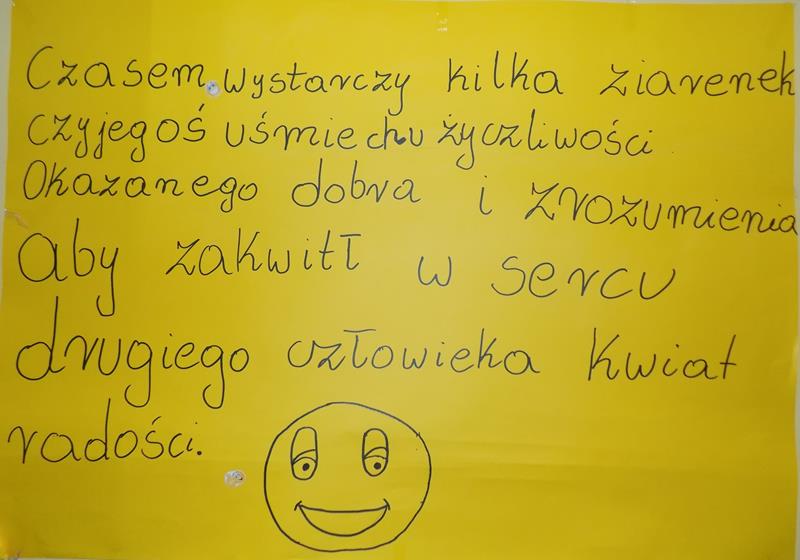 Czasem wystarczy kilka ziarenek
czyjegoś uśmiechu życzliwości
Okazanego dobra i zrozumienia
aby zakwitł w sercu
drugiego człowieka kwiat
radości.